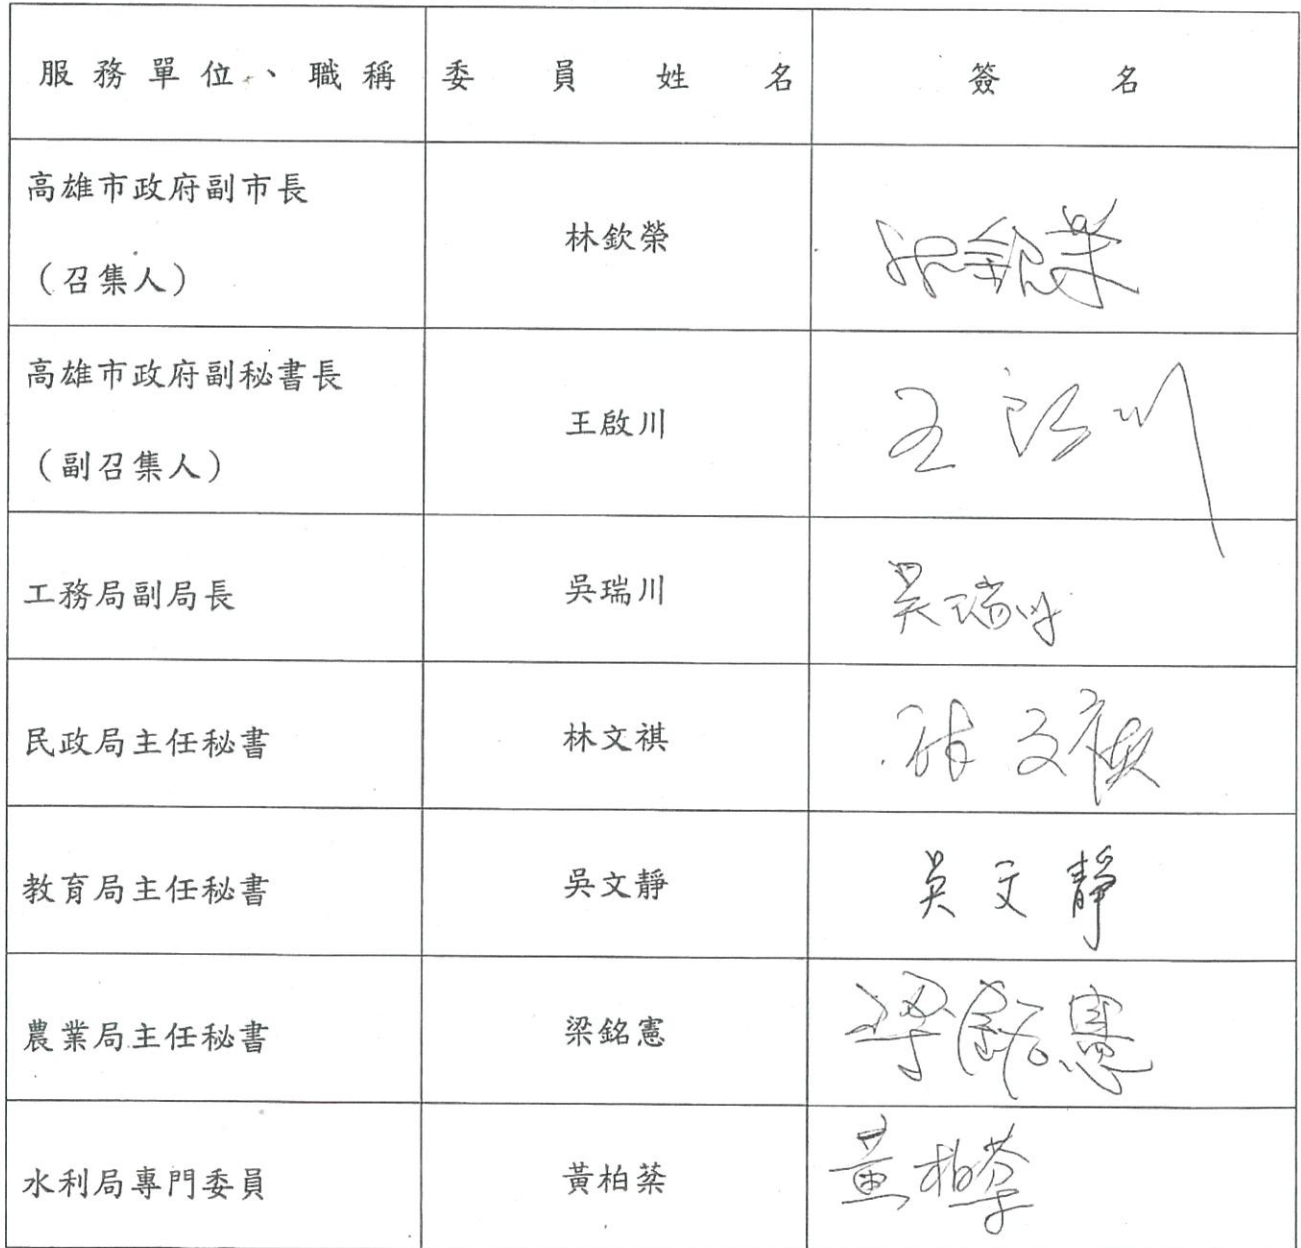 服務單位、職稱 委員姓名 簽名
高雄市政府副市長
（召集人）
林欽榮 林欽榮
高雄市政府副秘書長
（副召集人）
王啟川 王啟川
工務局副局長 吳瑞川 吳瑞川
民政局主任秘書 林文祺 林文祺
教育局主任秘書 吳文靜 吳文靜
農業局主任秘書 梁銘憲 梁銘憲
水利局專門委員 黃柏棻 黃柏棻